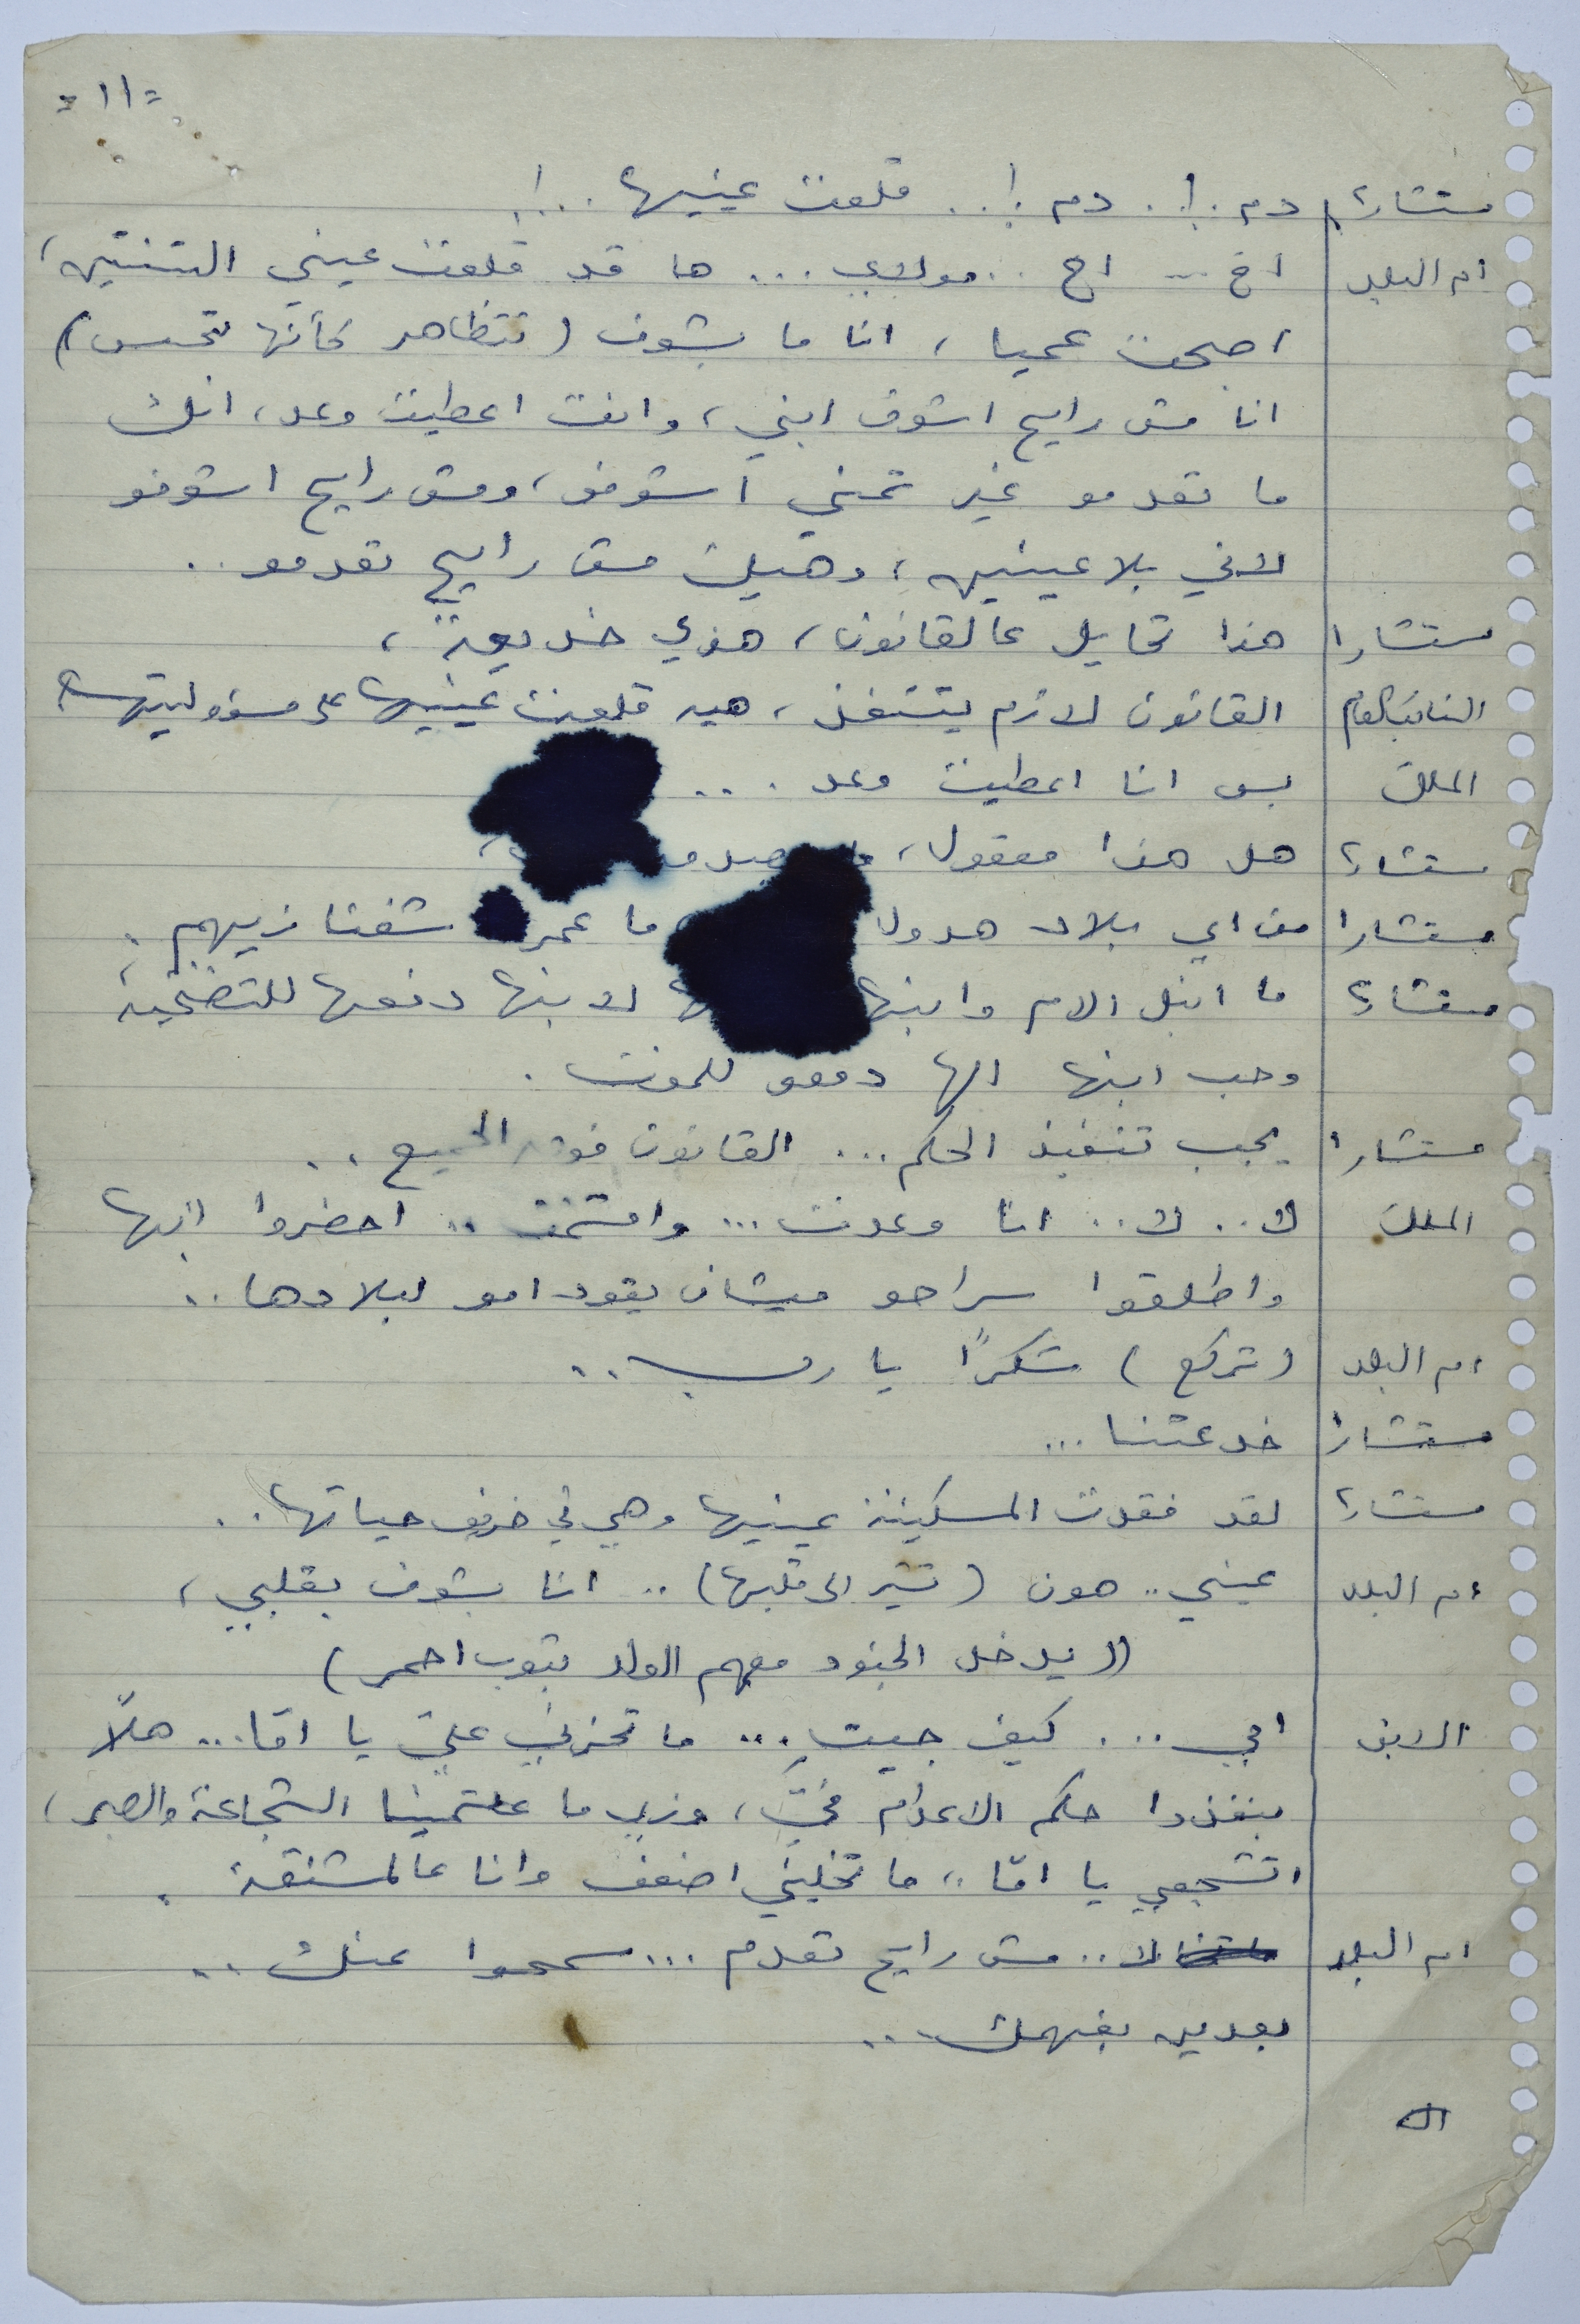 =١١=
مستشار٢ دم.!. دم !.. قلعت عينيها ..!.
ام البلد اخ .. اخ .. مولاي ... ها قد قلعت عيني التنتين،
اصبحت عميا، انا ما بشوف (تتظاهر كأنها تتحسس)
انا مش رايح اشوف ابني، وانت اعطيت وعد، انك
ما تعدمو غير تمني اشوفو، ومش رايح اشوفو
لاني بلا عينين، وهيك مش رايح تعدمو ..
مستشار١ هذا تحايل عالقانون، هذي خديعة،
النائب العام القانون لازم يتنفذ، هيه قلعت عينيها على مسؤوليتها
الملك بس انا اعطيت وعد ...
مستشار٢ هل هذا معقول،
مستشار١ من اي بلاد هدول ما عمر شفنا زيهم.
مستشار٢ ما انبل الام وابنها لابنها دفعها للتضحية،
وحب ابنها الها دفعو للموت.
مستشار١ يجب تنفيذ الحكم ... القانون فوق الجميع ..
الملك لا .. لا .. انا وعدت ... واقسمت .. احضروا ابنها
واطلقوا سراحو ميشان يقود امو لبلادها ..
ام البلد (تركع) شكرًا يا رب ..
مستشار١ خدعتنا ...
مستشار٢ لقد فقدت المسكينة عينيها وهي في خريف حياتها ..
ام البلد عيني .. هون (تشير الى قلبها) .. انا بشوف بقلبي،
((يدخل الجنود معهم الولد بتوب احمر)
الابن امي ... كيف جيتِ ... ما تحزني عليّ يا امّا ... هلأ
بنفذوا حكم الاعدام فيّ، وزي ما علمتينا الشجاعة والصبر،
اتشجعي يا امّا،، ما تخليني اضعف وانا عالمشنقة.
ام البلد لا .. مش رايح تعدم ... سمحوا عنك ..
بعدين بفهمك ...
ال